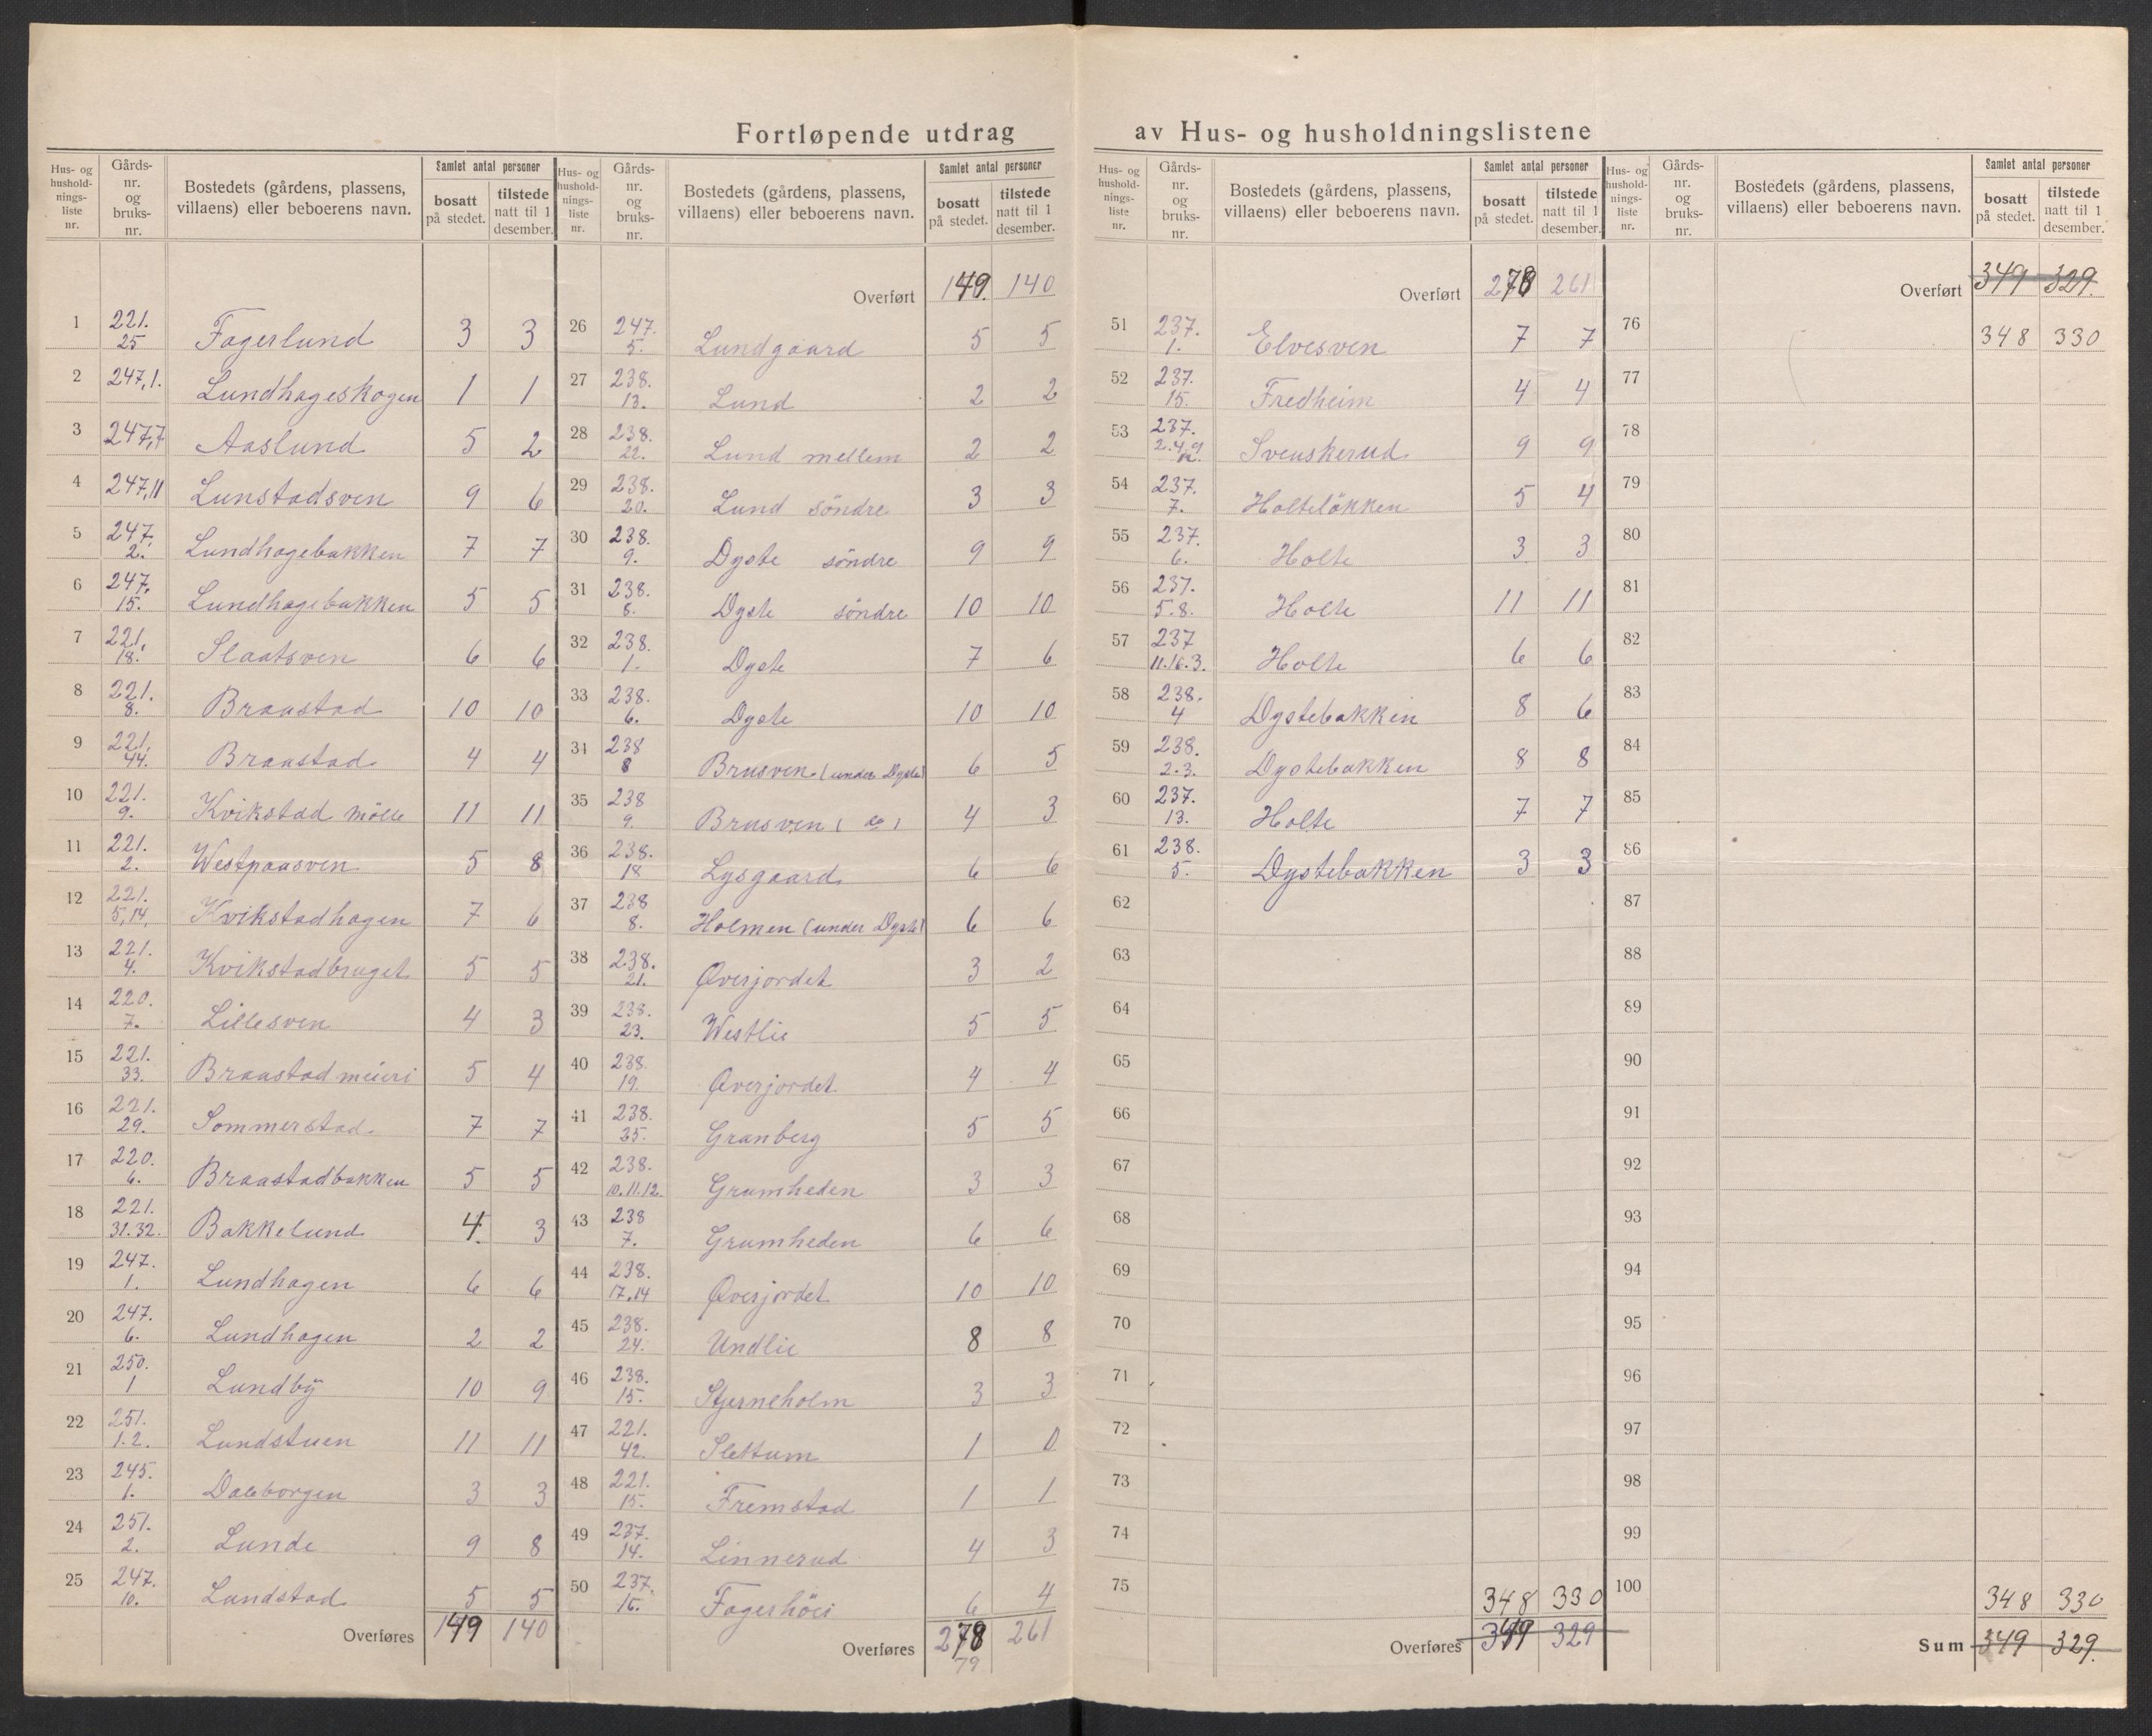 Fortløpende utdrag av Hus- og husholdningslistene
Hus- og hushold-nings-liste nr. | Gårds-nr. og bruks-nr. | Bostedets (gårdens, plassens, villaens) eller beboerens navn. | Samlet antal personer | bosatt på stedet. | tilstede natt til 1 desember.
1 | 221. 25 | Fagerlund | 3 | 3
2 | 247,1. | Lundhageskogen | 1 | 1
3 | 247,7 | Aaslund | 5 | 2
4 | 247,11 | Lunstadsven | 9 | 6
5 | 247. 2. | Lundhagebakken | 7 | 7
6 | 247. 15. | Lundhagebakken | 5 | 5
7 | 221. 18. | Slaatsven | 6 | 6
8 | 221. 8. | Braastad | 10 | 10
9 | 221. 44. | Braastad | 4 | 4
10 | 221. 9. | Kvikstad mölle | 11 | 11
11 | 221. 2. | Westpaasven | 5 | 8
12 | 221. 5,14, | Kvikstadhagen | 7 | 6
13 | 221. 4. | Kvikstadbruget | 5 | 5
14 | 220. 7. | Lillesven | 4 | 3
15 | 221. 33. | Braastad meieri | 5 | 4
16 | 221. 29. | Sommerstad | 7 | 7
17 | 220. 6. | Braastadbakken | 5 | 5
18 | 221. 31.32. | Bakkelund | 4. | 3
19 | 247. 1. | Lundhagen | 6 | 6
20 | 247. 6. | Lundhagen | 2 | 2
21 | 250. 1 | Lundby | 10 | 9
22 | 251. 1.2. | Lundstuen | 11 | 11
23 | 245. 1. | Daleborgen | 3 | 3
24 | 251. 2. | Lunde | 9 | 8
25 | 247. 10. | Lundstad | 5 | 5
Overføres | 149 | 140
Hus- og hushold-nings-liste nr. | Gårds-nr. og bruks-nr. | Bostedets (gårdens, plassens, villaens) eller beboerens navn. | Samlet antal personer | bosatt på stedet. | tilstede natt til 1 desember.
Overført | 149. | 140
26 | 247. 5. | Lundgaard | 5 | 5
27 | 238. 13. | Lund | 2 | 2
28 | 238. 22. | Lund mellem | 2 | 2
29 | 238. 20. | Lund söndre | 3 | 3
30 | 238. 9. | Dyste söndre | 9 | 9
31 | 238. 8. | Dyste söndre | 10 | 10
32 | 238. 1. | Dyste | 7 | 6
33 | 238. 6. | Dyste | 10 | 10
34 | 238 8 | Brusven (under Dyste) | 6 | 5
35 | 238 9. | Brusven ( do ) | 4 | 3
36 | 238. 18 | Lysgaard | 6 | 6
37 | 238 8. | Holmen (under Dyste) | 6 | 6
38 | 238. 21. | Øverjordet | 3 | 2
39 | 238. 23. | Westlie | 5 | 5
40 | 238. 19. | Øverjordet | 4 | 4
41 | 238. 25. | Granberg | 5 | 5
42 | 238. 10.11.12. | Grumheden | 3 | 3
43 | 238 7. | Grumheden | 6 | 6
44 | 238. 17.14 | Øverjordet | 10 | 10
45 | 238. 24. | Undlie | 8 | 8
46 | 238. 15. | Stjerneholm | 3 | 3
47 | 221. 42. | Slettum | 1 | 0
48 | 221. 15. | Fremstad | 1 | 1
49 | 237. 14. | Linnerud | 4 | 3
50 | 237. 16. | Fagerhöi | 6 | 4
Overføres | 278 | 261
79
Hus- og hushold-nings-liste nr. | Gårds-nr. og bruks-nr. | Bostedets (gårdens, plassens, villaens) eller beboerens navn. | Samlet antal personer | bosatt på stedet. | tilstede natt til 1 desember.
Overført | 278 | 261
51 | 237. 1. | Elvesven | 7 | 7
52 | 237. 15. | Fredheim | 4 | 4
53 | 237. 2.4.9 12. | Svenskerud | 9 | 9
54 | 237. 7. | Holteløkken | 5 | 4
55 | 237. 6. | Holte | 3 | 3
56 | 237. 5.8. | Holte | 11 | 11
57 | 237 11.16.3. | Holte | 6 | 6
58 | 238. 4 | Dystebakken | 8 | 6
59 | 238. 2.3. | Dystebakken | 8 | 8
60 | 237. 13. | Holte | 7 | 7
61 | 238. 5. | Dystebakken | 3 | 3
62
63
64
65
66
67
68
69
70
71
72
73
74
75
348 | 330
Overføres | 349 | 329
Hus- og hushold-nings-liste nr. | Gårds-nr. og bruks-nr. | Bostedets (gårdens, plassens, villaens) eller beboerens navn. | Samlet antal personer | bosatt på stedet. | tilstede natt til 1 desember.
Overført | 349 | 329.
76 | 348 | 330
77
78
79
80
81
82
83
84
85
86
87
88
89
90
91
92
93
94
95
96
97
98
99
100 | 348 | 330
Sum | 349 | 329.